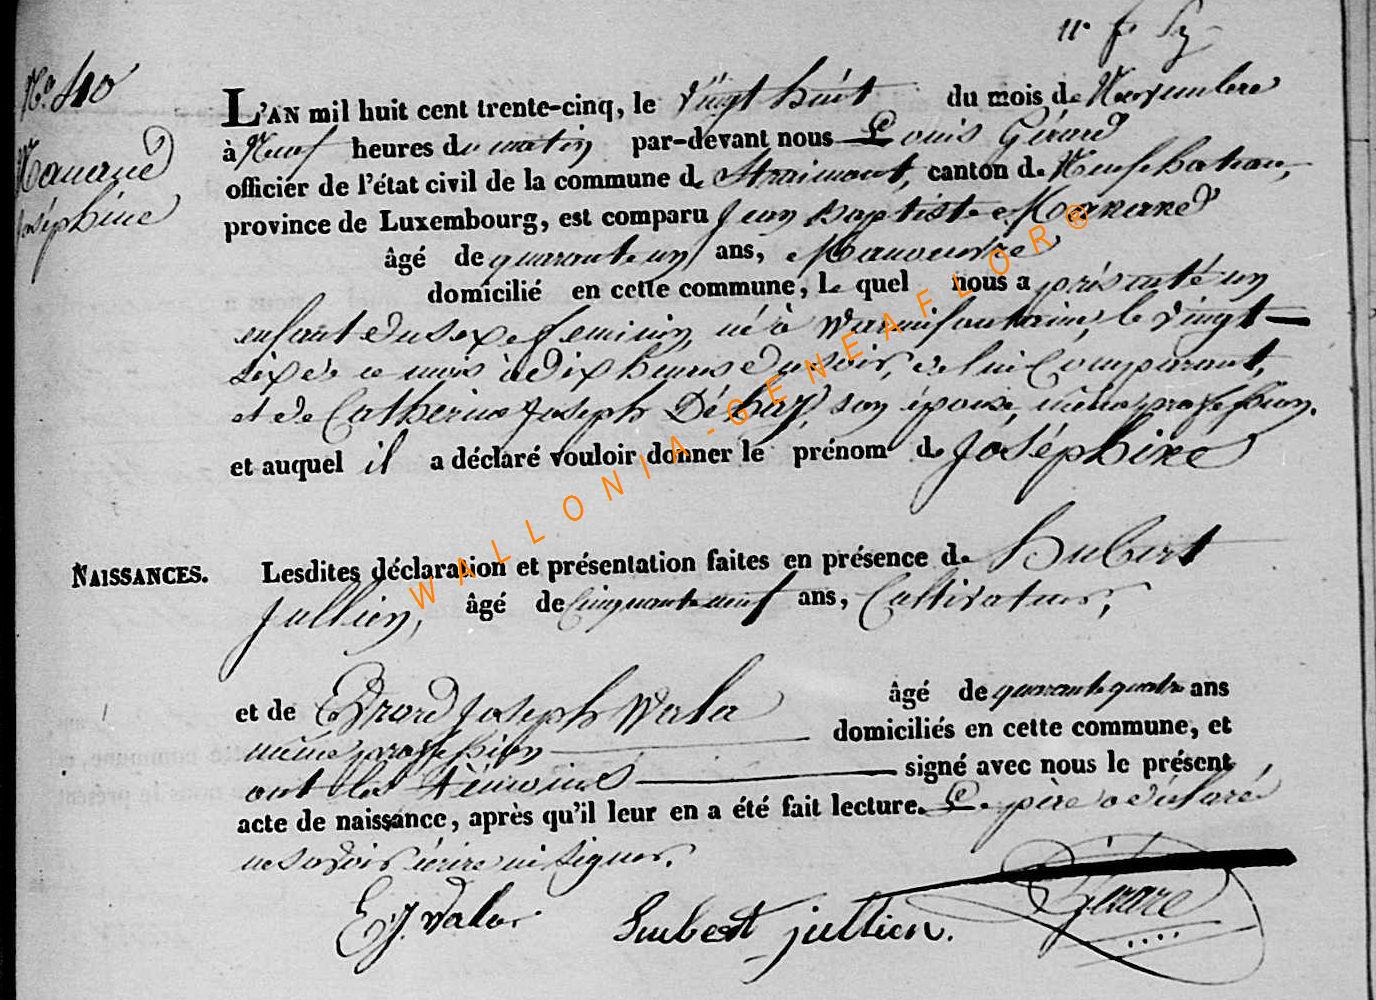 N.o 40
Manand
Joséphine
L'AN mil huit cent trente-cinq, le vingt huit du mois de Novembre
à Neuf heures du matin par-devant nous Louis Gérard
officier de l'état civil de la commune de Straimont, canton de Neufchateau,
province de Luxembourg, est comparu Jean Baptiste
âgé de quarante un ans, Manoeuvre
domicilié en cette commune, le quel nous a présenté un
enfant du sexe feminin, né à Warmifontaine, le vingt
six de ce mois à dix heures du soir, de lui Comparant,
et de Catherine Joseph Déhay, son épouse, même profession.
et auquel il a déclaré vouloir donner le prénom de Joséphine
NAISSANCES.
Lesdites déclaration et présentation faites en présence de Hubert
Jullien, âgé de Cinquante neuf ans, Cultivateur,
et de Evrard Joseph Wala âgé de quarante quatre ans
même profession domiciliés en cette commune, et
ont les témoins signé avec nous le présent
acte de naissance, après qu'il leur en a été fait lecture. Le père a déclaré
ne savoir écrire ni signer.
E. J. Wala
Hubert jullien.
Gérard
WALLONIA-GENEAFLOR®